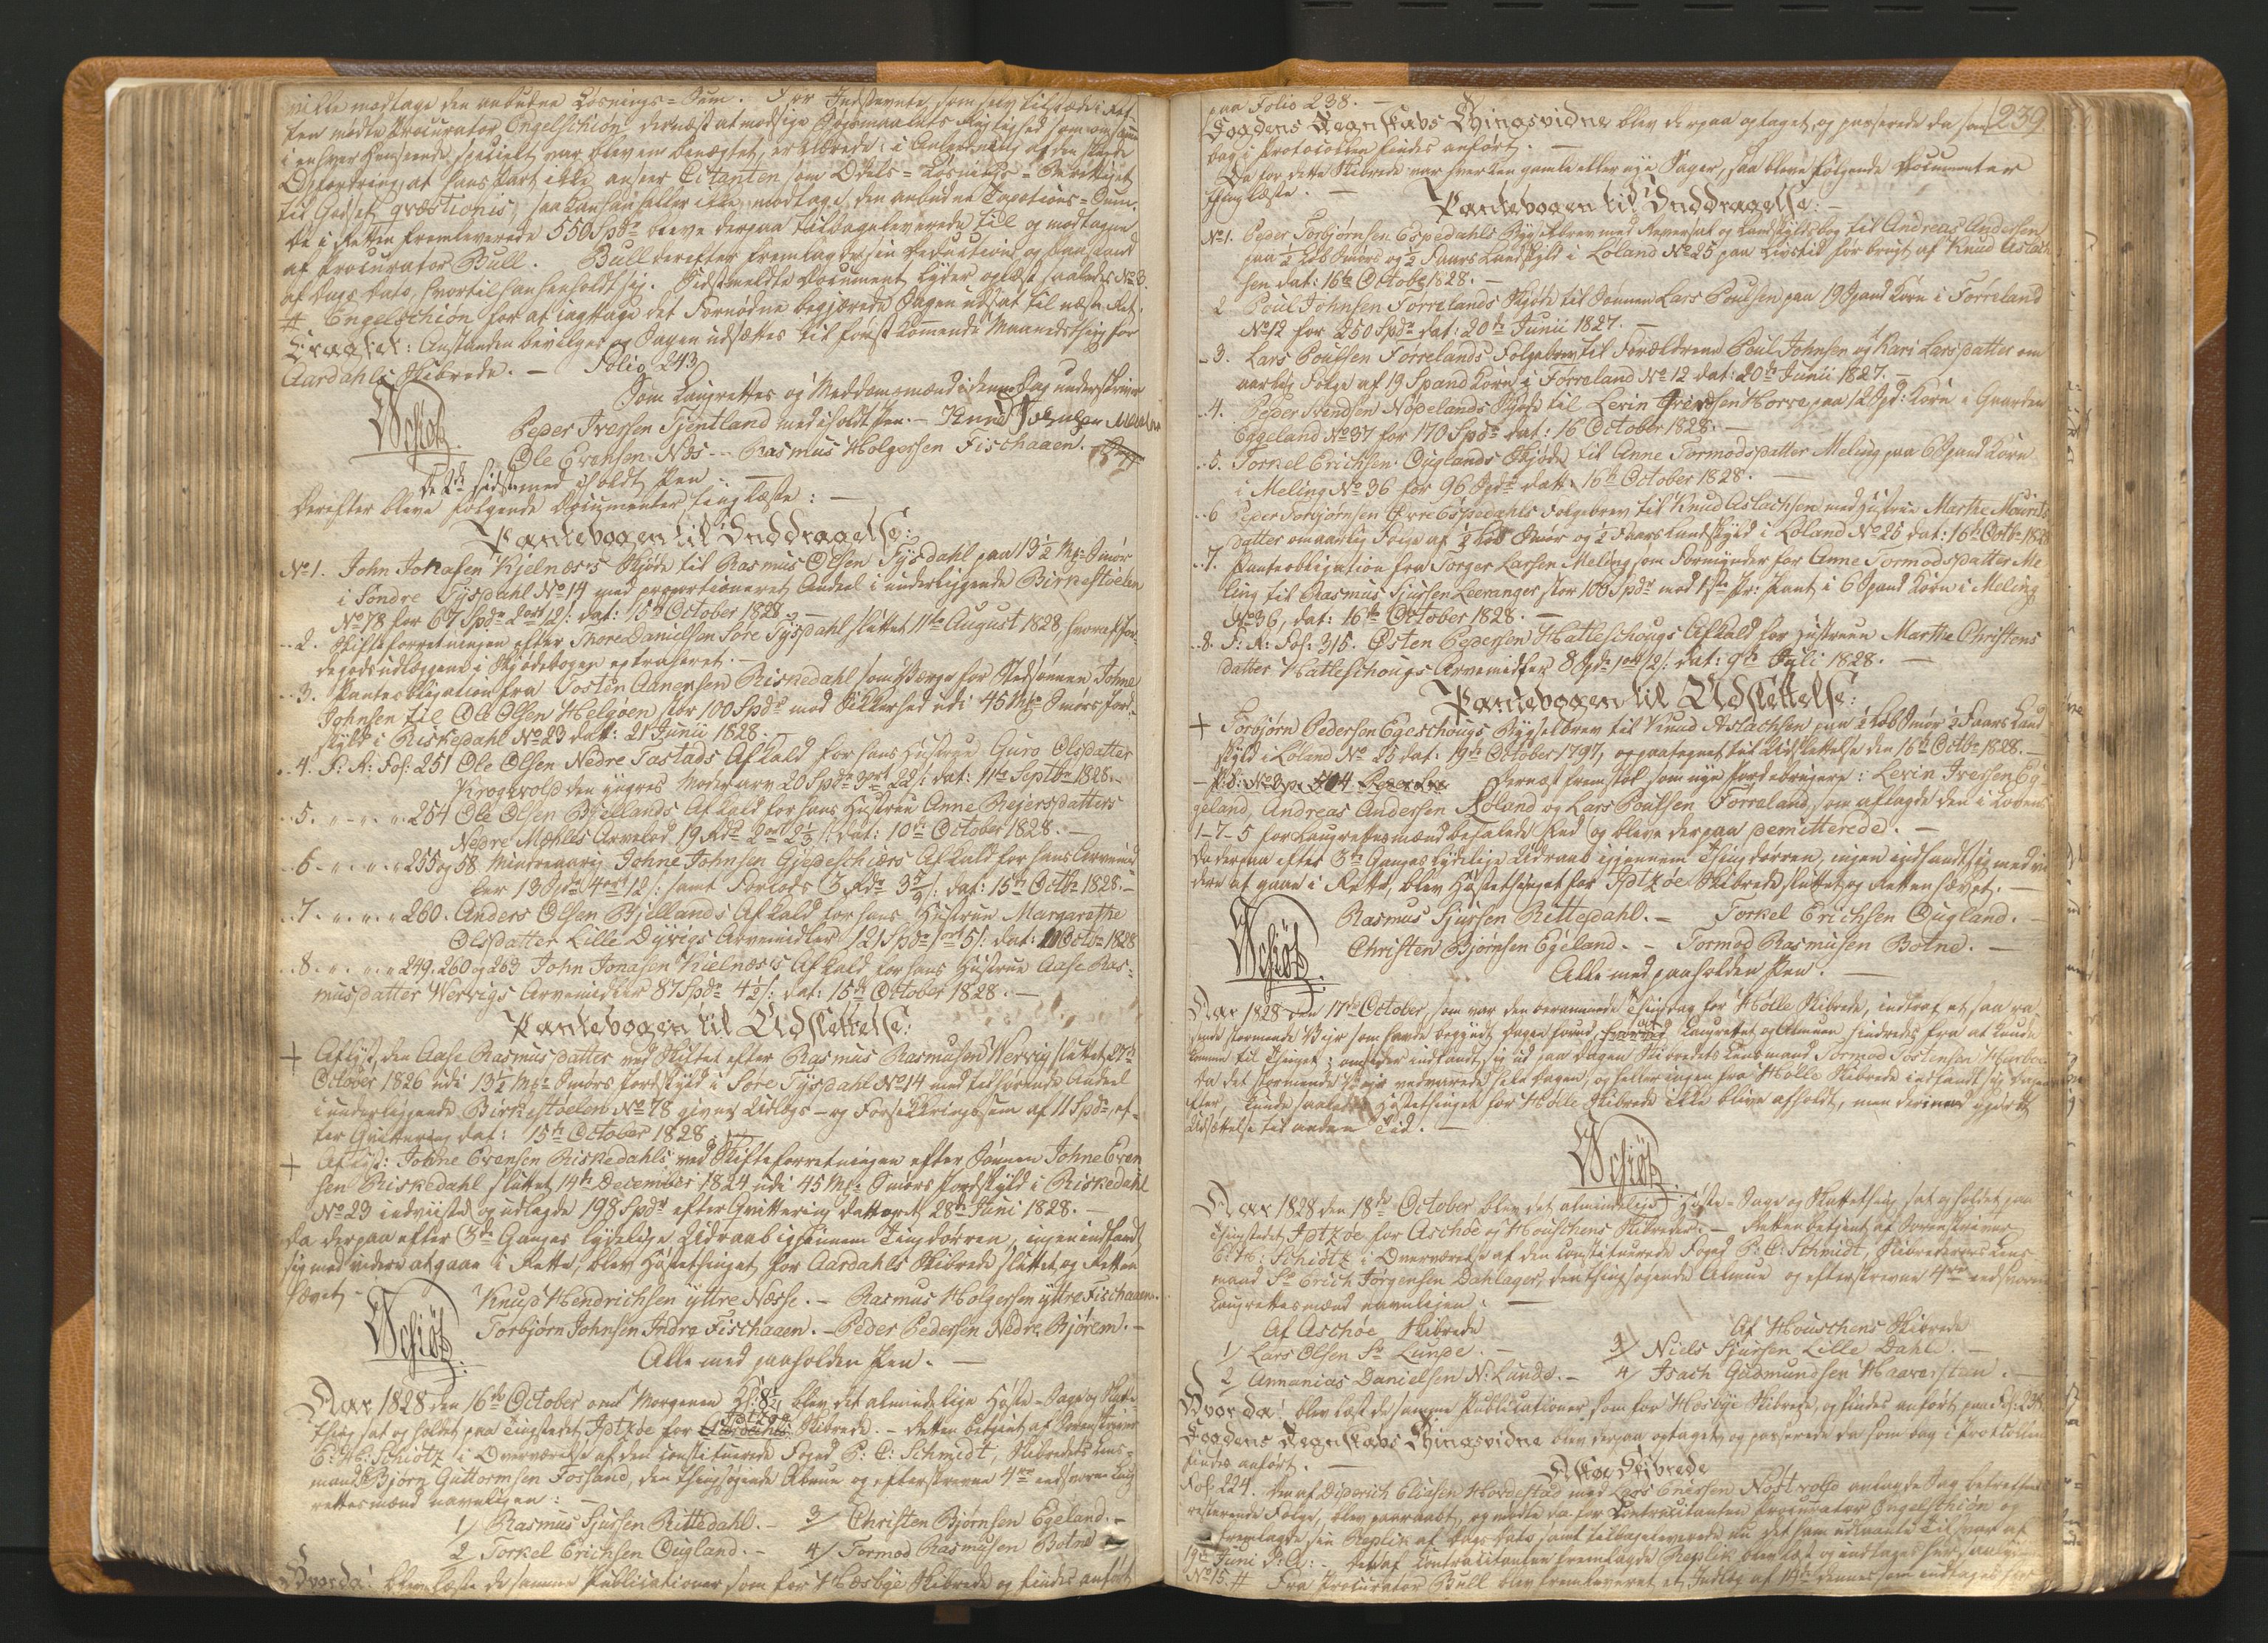 ville modtage den anbudne Løsnings-Sum. For Indstevnte, som selv tilstæde i Ret-
ten mødte Procurator Engelschiøn, dernæst at modsige Søgsmaalets Rigtighed
i enhver Henseende, specielt var blev em benægtet, erklærede: i Anledning af den skeede
Opfordring, at hans Part ikke anseer Citanten som Odels- Løsnings- Berettiget
til Godset qvæstionis, saa kan han heller ikke modtage den anbudne Taxations-Sum.
De i Retten fremleverede 550 Spdr bleve derpaa tilbageleverede til og modtagne
af Procurator Bull. Bull derefter fremlagde sin Deductions og Paastand
af Dags Dato, hvortil han henholdt sig. Sidstmeldte Document lyder oplæst saaledes No 3.
# Engelschiøn for at iagttage det Fornødne begjærede Sagen udsat til næste Ret.
Eragtet: Anstanden bevilges og Sagen udsættes til førstkommende Maanedsthing for
Aardahls Skibrede. – Folio 243
Som Laugrettes og Meddomsmænd i denne Sag underskriver
Schiøtz
Peder Iversen Tjentland med iholdt Pen. – Knud Johnsen
Ole Evensen Næs -- Rasmus Holgersen Fischaaen.
De 2de sidste med iholdt Pen. –
Derefter bleve følgende Documenter tinglæste: –
Pantebogen til Inddragelse:
No 1. John Jonasen Kjelnæs's Skjøde til Rasmus Olsen Tysdahl paa 13½ Mk Smør
i Søndre Tysdahl No 14 med proportioneret Andeel i underliggende Birkestøelen
No 78 for 67 Spdr 2ort 12 s: dat: 15de October 1828. –
2. Skifteforretningen efter Thore Danielsen Søre Tysdahl sluttet 11te August 1828, hvoraf Jor-
degodsudlæggene i Skjødebogen extraheret. –
3. Panteobligation fra Tosten Aanensen Riskedahl som Værge for Stedsønnen Johne
Johnsen til Ole Olsen Helgøen, stor 100 Spdr mod Sikkerhed udi 45 Mk Smørs Jord-
skyld i Riskedahl No 23 dat: 21 Junii 1828. –
4. F: A: Fol: 251 Ole Olsen Nedre Tastads Afkald for hans Hustrue Guro Olsdatter
Krogevold den yngres Moderarv 20 Spdr 3ort 22 s: dat: 11te Septbr 1828. –
5. " " " 254 Ole Olsen Bjellands Afkald for hans Hustrue Anne Reiersdatters
Nedre Mæhles Arvelod 19 Rdr 2ort 2⅓ s: dat: 10de October 1828. –
6. " " " 255 og 58. Mindreaarig Johne Johnsen Gjedeschiærs Afkald for hans Arvemid-
ler 13 Spdr 4ort 12 s: samt Forlods 3 Rdr 3 s: dat: 15de Octbr 1828. –
7. " " " 260. Anders Olsen Bjellands Afkald for hans Hustrue Margarethe
Olsdatter Lille Dyvigs Arvemidler 121 Spdr 1ort 5 s: dat: Octbr 1828
8. " " " 249. 260 og 263 John Jonasen Kielnæs's Afkald for hans Hustrue Aase Ras-
musdatter Vervigs Arvemidler 87 Spdr 4½ s: dat: 15de October 1828. –
Pantebogen til Udslettelse:
+ Aflyst, den Aase Rasmusdatter ved Skiftet efter Rasmus Rasmusen Vervig sluttet 27de
October 1826 udi 13½ Mk Smørs Jordskyld i Søre Tysdahl No 14 med tilhørende Andeel
i underliggende Birkestøelen No 78 givne Udlægs- og Forsikkringssum af 11 Spdr, ef-
ter Qvittering dat: 15de October 1828.
+ Aflyst: Johne Evensen Riskedahls ved Skifteforretningen efter Sønnen Johne Even-
sen Riskedahl sluttet 14de December 1824 udi 45 Mk Smørs Jordskyld i Riskedahl
No 23 indviiste og udlagde 198 Spdr efter Qvittering datteret 28de Juni 1828. –
Da derpaa efter 3de Ganges lydelige Udraab igjennem Tingdørren, ingen indfand
sig med videre at gaae i Rette, blev Høstethinget for Aardahls Skibrede sluttet og Retten
hævet –
Schiøtz
Knud Hendrichsen yttre Næsse. – Rasmus Holgersen yttre Fischaaen.
Torbjørn Johnsen Indre Fischaaen. – Peder Pedersen Nedre Bjørem. –
Alle med paaholden Pen. –
Aar 1828 den 16de October om Morgenen Kl: 8½, blev det almindelige Høste- Sage og Skatte-
thing sat og holdet paa Tingstedet Idtzøe for Idtzøe Skibrede. – Retten betjent af Sorenskriver
E: H: Schiøtz i Overværelse af den constituerede Foged P: C: Schmidt, Skibredets Lens-
mand Bjørn Guttormsen Fossand, den thingsøgende Almue og efterskrevne 4re eedsvorne Laug-
rettesmænd navnligen: –
1/ Rasmus Sjursen Rittedahl. – 3/ Christen Bjørnsen Egeland. –
2/ Torkel Erichsen Øugland. – 4/ Tormod Rasmusen Botne
Hvorda! bleve læste de samme Publicationer som for Hæsbye Skibrede og findes anført
239
paa Folio 238. –
Fogdens Regnskabs Thingsvidne blev derpaa optaget, og passerede da som
bag i Protocollen findes anført. –
Da for dette Skibrede var hverken gamle eller nye Sager, saa bleve følgende Documenter
thinglæste. –
Pantebogen til Inddragelse: –
No 1. Peder Torbjørnsen Espedahls Bygselbrev med Reversat og Landskyldsbog til Andreas Andersen
paa ½ Løb Smørs og ½ Faars Landskyld i Løland No 25 paa Livstid før brugt af Knud Aslach-
sen dat: 16de Octobr 1828. –
2 Poul Johnsen Førrelands Skjøde til Sønnen Lars Poulsen paa 19 Spand Korn i Førreland
No 12 for 250 Spdr dat: 20de Junii 1827. –
3. Lars Poulsen Førrelands Folgebrev til Forældrene Poul Johnsen og Kari Larsdatter om
aarlig Folge af 19 Spand Korn i Førreland No 12 dat: 20de Junii 1827. –
4. Peder Svendsen Nøpelands Skjøde til Levin Iversen Horve paa 12 Spd: Korn i Gaarden
Eggeland No 37 for 170 Spdr dat: 16 October 1828. –
5. Torkel Erichsen Øuglands Skjøde til Anne Tormodsdatter Meling paa 6 Spand Korn
i Meling No 36 for 96 Spdr dat: 16de October 1828. –
6 Peder Torbjørnsen Øvre Espedahls Folgebrev til Knud Aslachsen med Hustrue Marthe Mourits-
datter om aarlig Folge af ½ Løb Smør og ½ Faars Landskyld i Løland No 25 dat: 16de Octbr 1828
7. Panteobligation fra Torger Larsen Meling som Formynder for Anne Tormodsdatter Me-
ling til Rasmus Sjursen Leeranger stor 100 Spdr mod 1ste Pr: Pant i 6 Spand Korn i Meling
No 36, dat: 16de October 1828. –
8. F: A: Fol: 315. Østen Pedersen Hatleschougs Afkald for Hustruen Marthe Christens-
datter Hatleschougs Arvemidler 8 Spdr 1ort 2 s: dat: 9de Juli 1828. –
Pantebogen til Udslettelse:
+ Torbjørn Pedersen Egeschougs Bygselbrev til Knud Aslachsen paa ½ Løb Smør ½ Faars Land-
skyld i Løland No 25 dat: 19de October 1797, og paategnet til Udslettelse den 16de Octbr 1828. –
Dernæst fremstod som nye Jordebrugere: Levin Iversen Eg-
geland, Andreas Andersen Løland og Lars Poulsen Førreland, som aflagde den i Lovens
1-7-5 for Laugrettesmænd befalede Eed og bleve derpaa demitterede. –
Da derpaa efter 3de Ganges lydelige Udraab igjennem Thingdørren, ingen indfandt sig med vi-
dere at gaae i Rette, blev Høstethinget for Idtzøe Skibrede sluttet og Retten hævet. –
Schiøtz
Rasmus Sjursen Rittedahl. – Torkel Erichsen Øugland. –
Christen Bjørnsen Egeland. – Tormod Rasmusen Botne. –
Alle med paaholden Pen. –
Aar 1828 den 17de October, som var den berammede Thingdag for Hølle Skibrede, indtraf et saa ra-
sende stormende Veir som havde begyndt Dagen forud, at Laugrettet og Almuen hindredes fra at kunde
komme til Thinget; omsider indfandt sig ud paa Dagen Skibredets Lensmand Tormod Tostensen
Da det stormende Veir vedvarede hele Dagen, og heller ingen fra Hølle Skibrede indfandt sig Dagen
efter, kunde saaledes Høstethinget for Hølle Skibrede ikke blive afholdt, men derimod
Udsættelse til anden Tid. –
Schiøtz
Aar 1828 den 18de October blev det almindelige Høste- Sage og Skattething sat og holdet paa
Thingstedet Idtzøe for Aschøe og Houschens Skibreder. – Retten betjent af Sorenskriver
E: H: Schiøtz i Overværelse af den constituerede Foged P: C: Schmidt, Skibredernes Lens-
mand Sr Erich Jørgensen Dahlager, den thingsøgende Almue og efterskrevne 4re eedsvorne
Laugrettesmænd navnligen: –
Af Aschøe Skibrede
Af Houschens Skibrede
1/ Lars Olsen Sr Lunde. – 3/ Niels Sjursen Lille Dahle. –
2/ Annanias Danielsen N: Lunde. – 4/ Isach Gudmundsen Haaverstøn. –
Hvorda! blev læst de samme Publicationer som for Hæsbye Skibrede, og findes anført paa Fol: 238.
Fogdens Regnskabs Thingsvidne blev derpaa optaget, og passerede da som bag i Protocollen
findes anført. –
Askøe Skibrede
Fol: 224. Den af Diderich Eliasen Hordestad mod Lars Enersen Nøstvold anlagde Sag betreffende
resterende Folge, blev paaraabt, og mødte da for Contracitanten Procurator Engelschiøn og
fremlagde sin Replik af Dags Dato, samt tilbageleverede nu det ham udlaante Tilsvar af
19de Juni d: A: – Den af Contracitanten fremlagde Replik blev læst og indtages her saalydende
No 15. # Fra Procurator Bull blev fremleveret et Indlæg af 14de dennes som indtages her